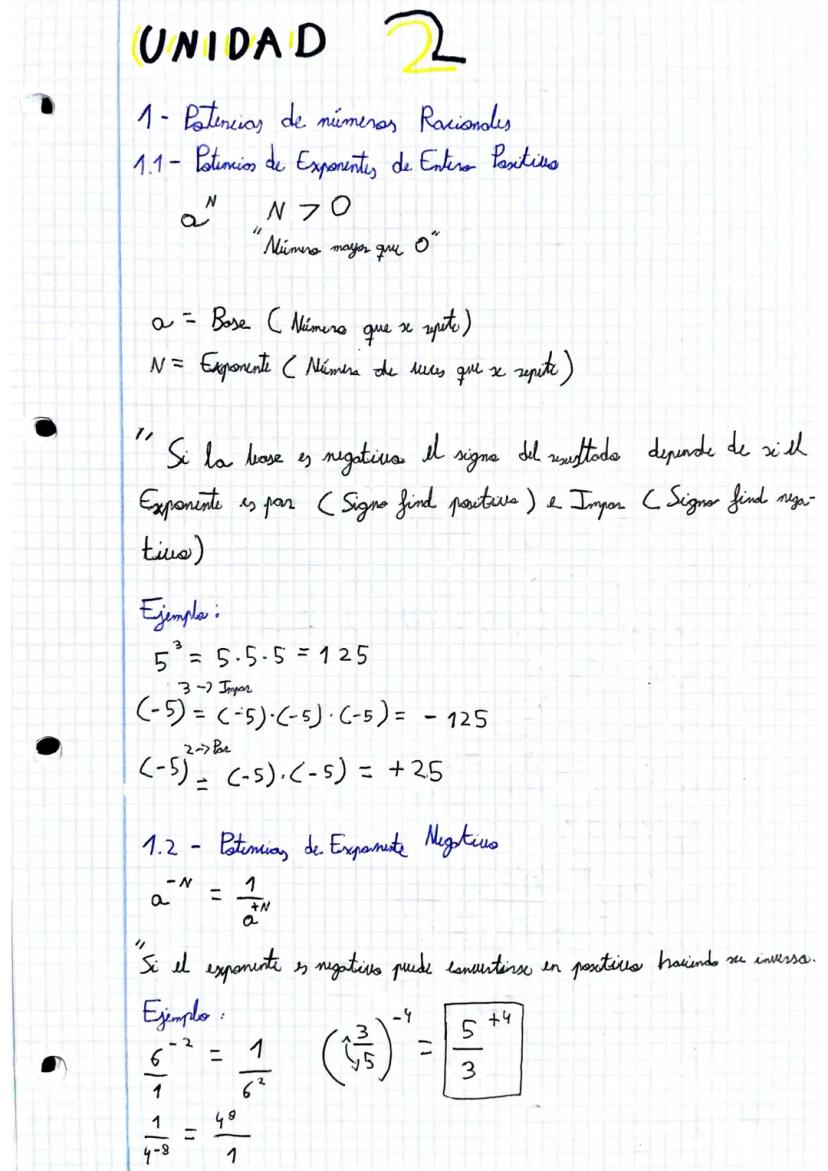 UNIDAD 2
1 - Potencias de números Racionales
1.1 - Potencias de Exponentes de Entero Positivo
a^N N > 0
"Número mayor que 0"
a = Base (Número que se repite)
N = Exponente (Número de veces que se repite)
"Si la base es negativa el signo del resultado depende de si el
Exponente es par (Signo final positivo) e Impar (Signo final nega-
tivo)
Ejemplo:
5^3 = 5·5·5 = 125
(-5)^3 -> Impar = (-5)·(-5)·(-5) = - 125
(-5)^2 -> Par = (-5)·(-5) = +25
1.2 - Potencias de Exponente Negativo
a^-N = 1/a^+N
"Si el exponente es negativo puede convertirse en positivo haciendo su inversa.
Ejemplo:
6^-2/1 = 1/6^2 (3/5)^-4 = 5/3^+4
1/4^-8 = 4^8/1